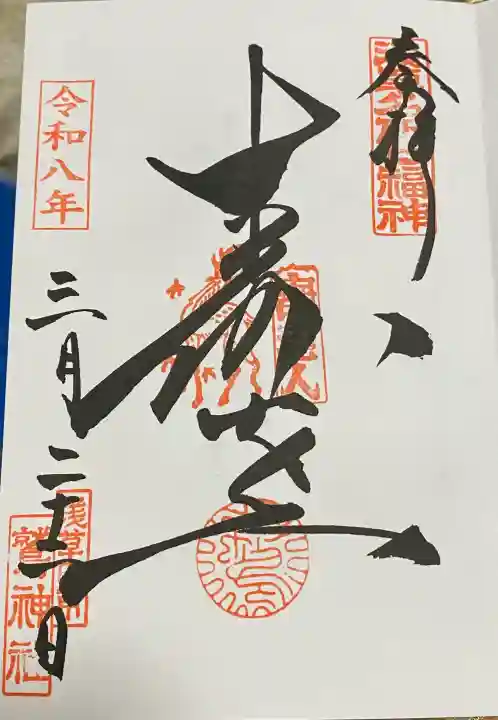 奉拝
浅草名所七福神
寿老人
令和八年
三月二十一日
浅草田甫
鷲神社